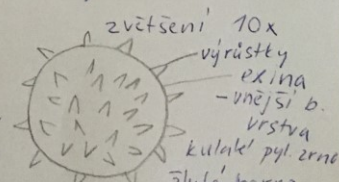 zvětšení 10x
výrůstky
exina
- vnější b.
vrstva
kulaté pyl. zrno
žlutá barva